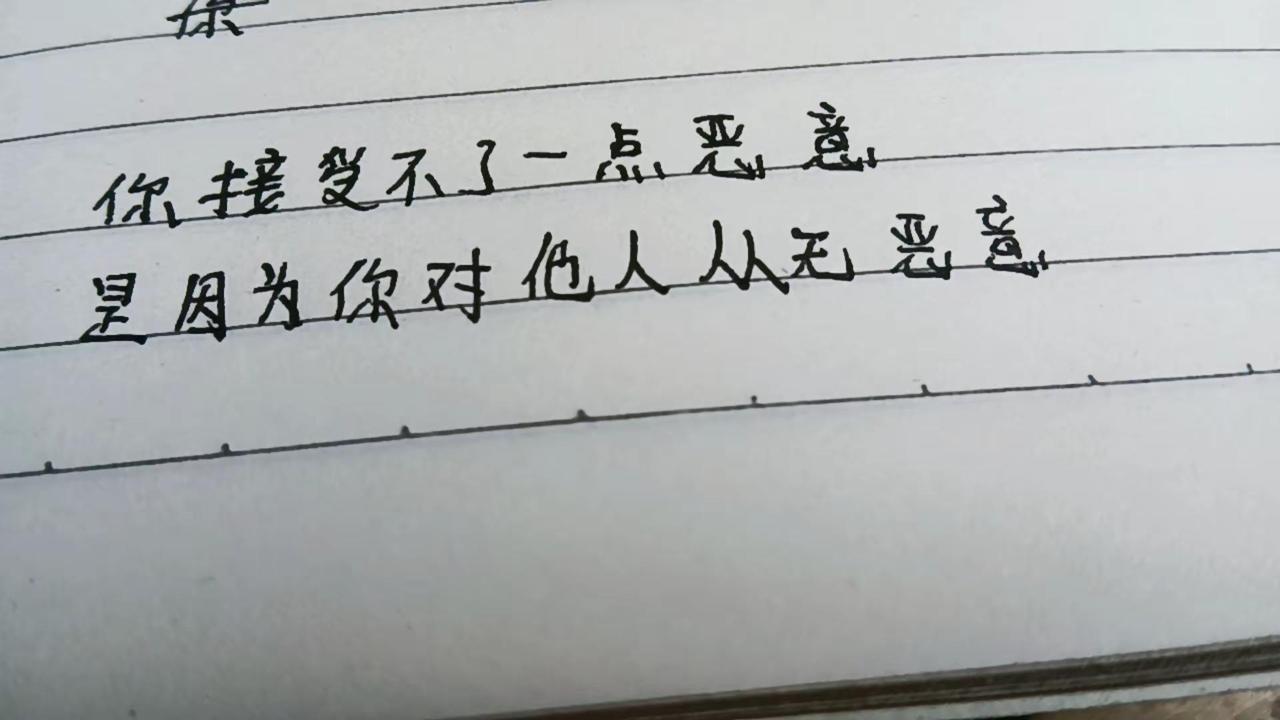 你
你接受不了一点恶意
是因为你对他人从无恶意